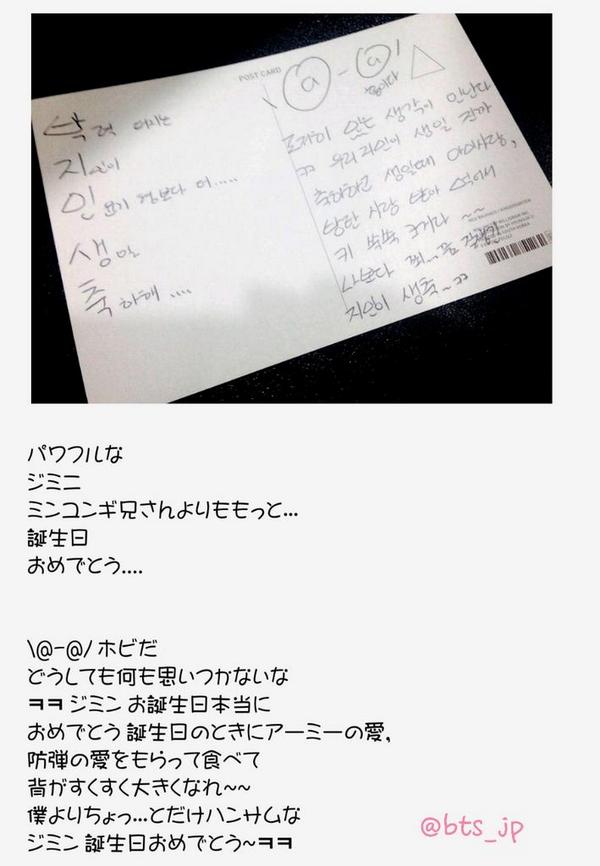 POST CARD
박력 있는
지민이
민윤기 형보다 더.....
생일
축하해 ....
\@-@/
홉이다
도저히 생각이 안난다
ㅋㅋ 우리 지민이 생일 진짜
축하하고 생일때 아미사랑,
방탄 사랑 받아 먹어서
키 쑥쑥 크거라 ~~
나보다 잘생긴
지민이 생축~ㅋㅋ
パワフルな
ジミニ
ミンユンギ兄さんよりももっと...
誕生日
おめでとう....
\@-@/ ホビだ
どうしても何も思いつかないな
ㅋㅋ ジミン お誕生日本当に
おめでとう 誕生日のときにアーミーの愛,
防弾の愛をもらって食べて
背がすくすく大きくなれ~~
僕よりちょっ...とだけハンサムな
ジミン 誕生日おめでとう~ㅋㅋ
@bts_jp